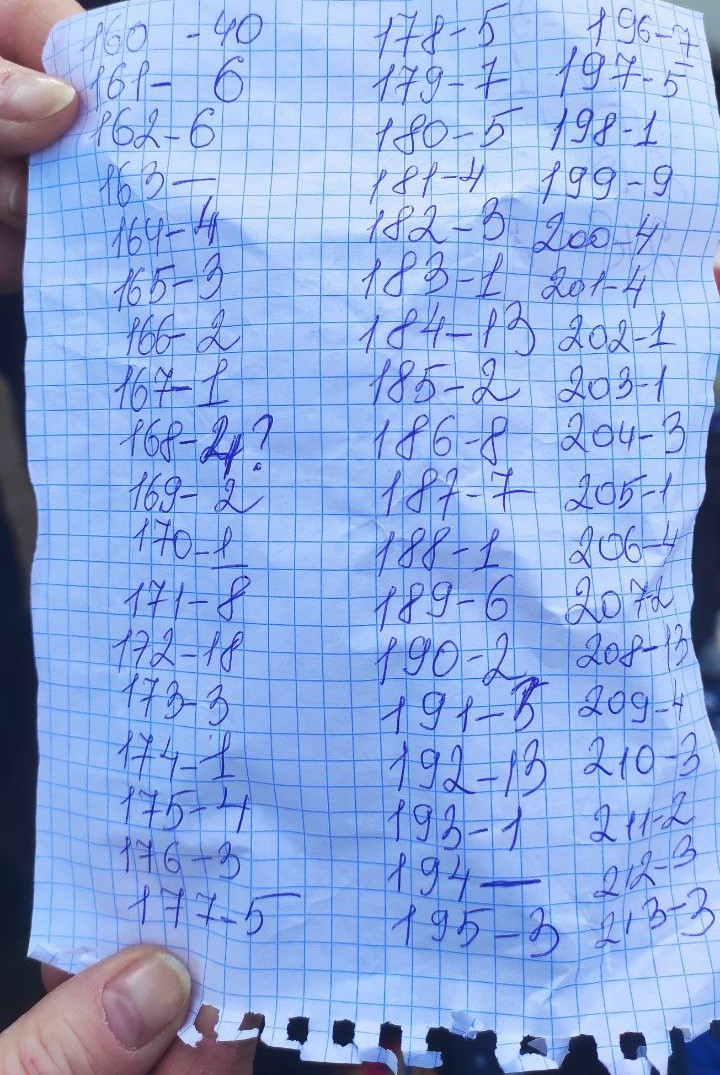 160 - 40
161 - 6
162 - 6
163 —
164 - 4
165 - 3
166 - 2
167 - 1
168 - 24?
169 - 2
170 - 1
171 - 8
172 - 18
173 - 3
174 - 1
175 - 4
176 - 3
177 - 5
178 - 5
179 - 7
180 - 5
181 - 4
182 - 3
183 - 1
184 - 13
185 - 2
186 - 8
187 - 7
188 - 1
189 - 6
190 - 2
191 - 5
192 - 13
193 - 1
194 —
195 - 3
196 - 7
197 - 5
198 - 1
199 - 9
200 - 4
201 - 4
202 - 1
203 - 1
204 - 3
205 - 1
206 - 4
207 2
208 - 13
209 - 4
210 - 3
211 - 2
212 - 3
213 - 3